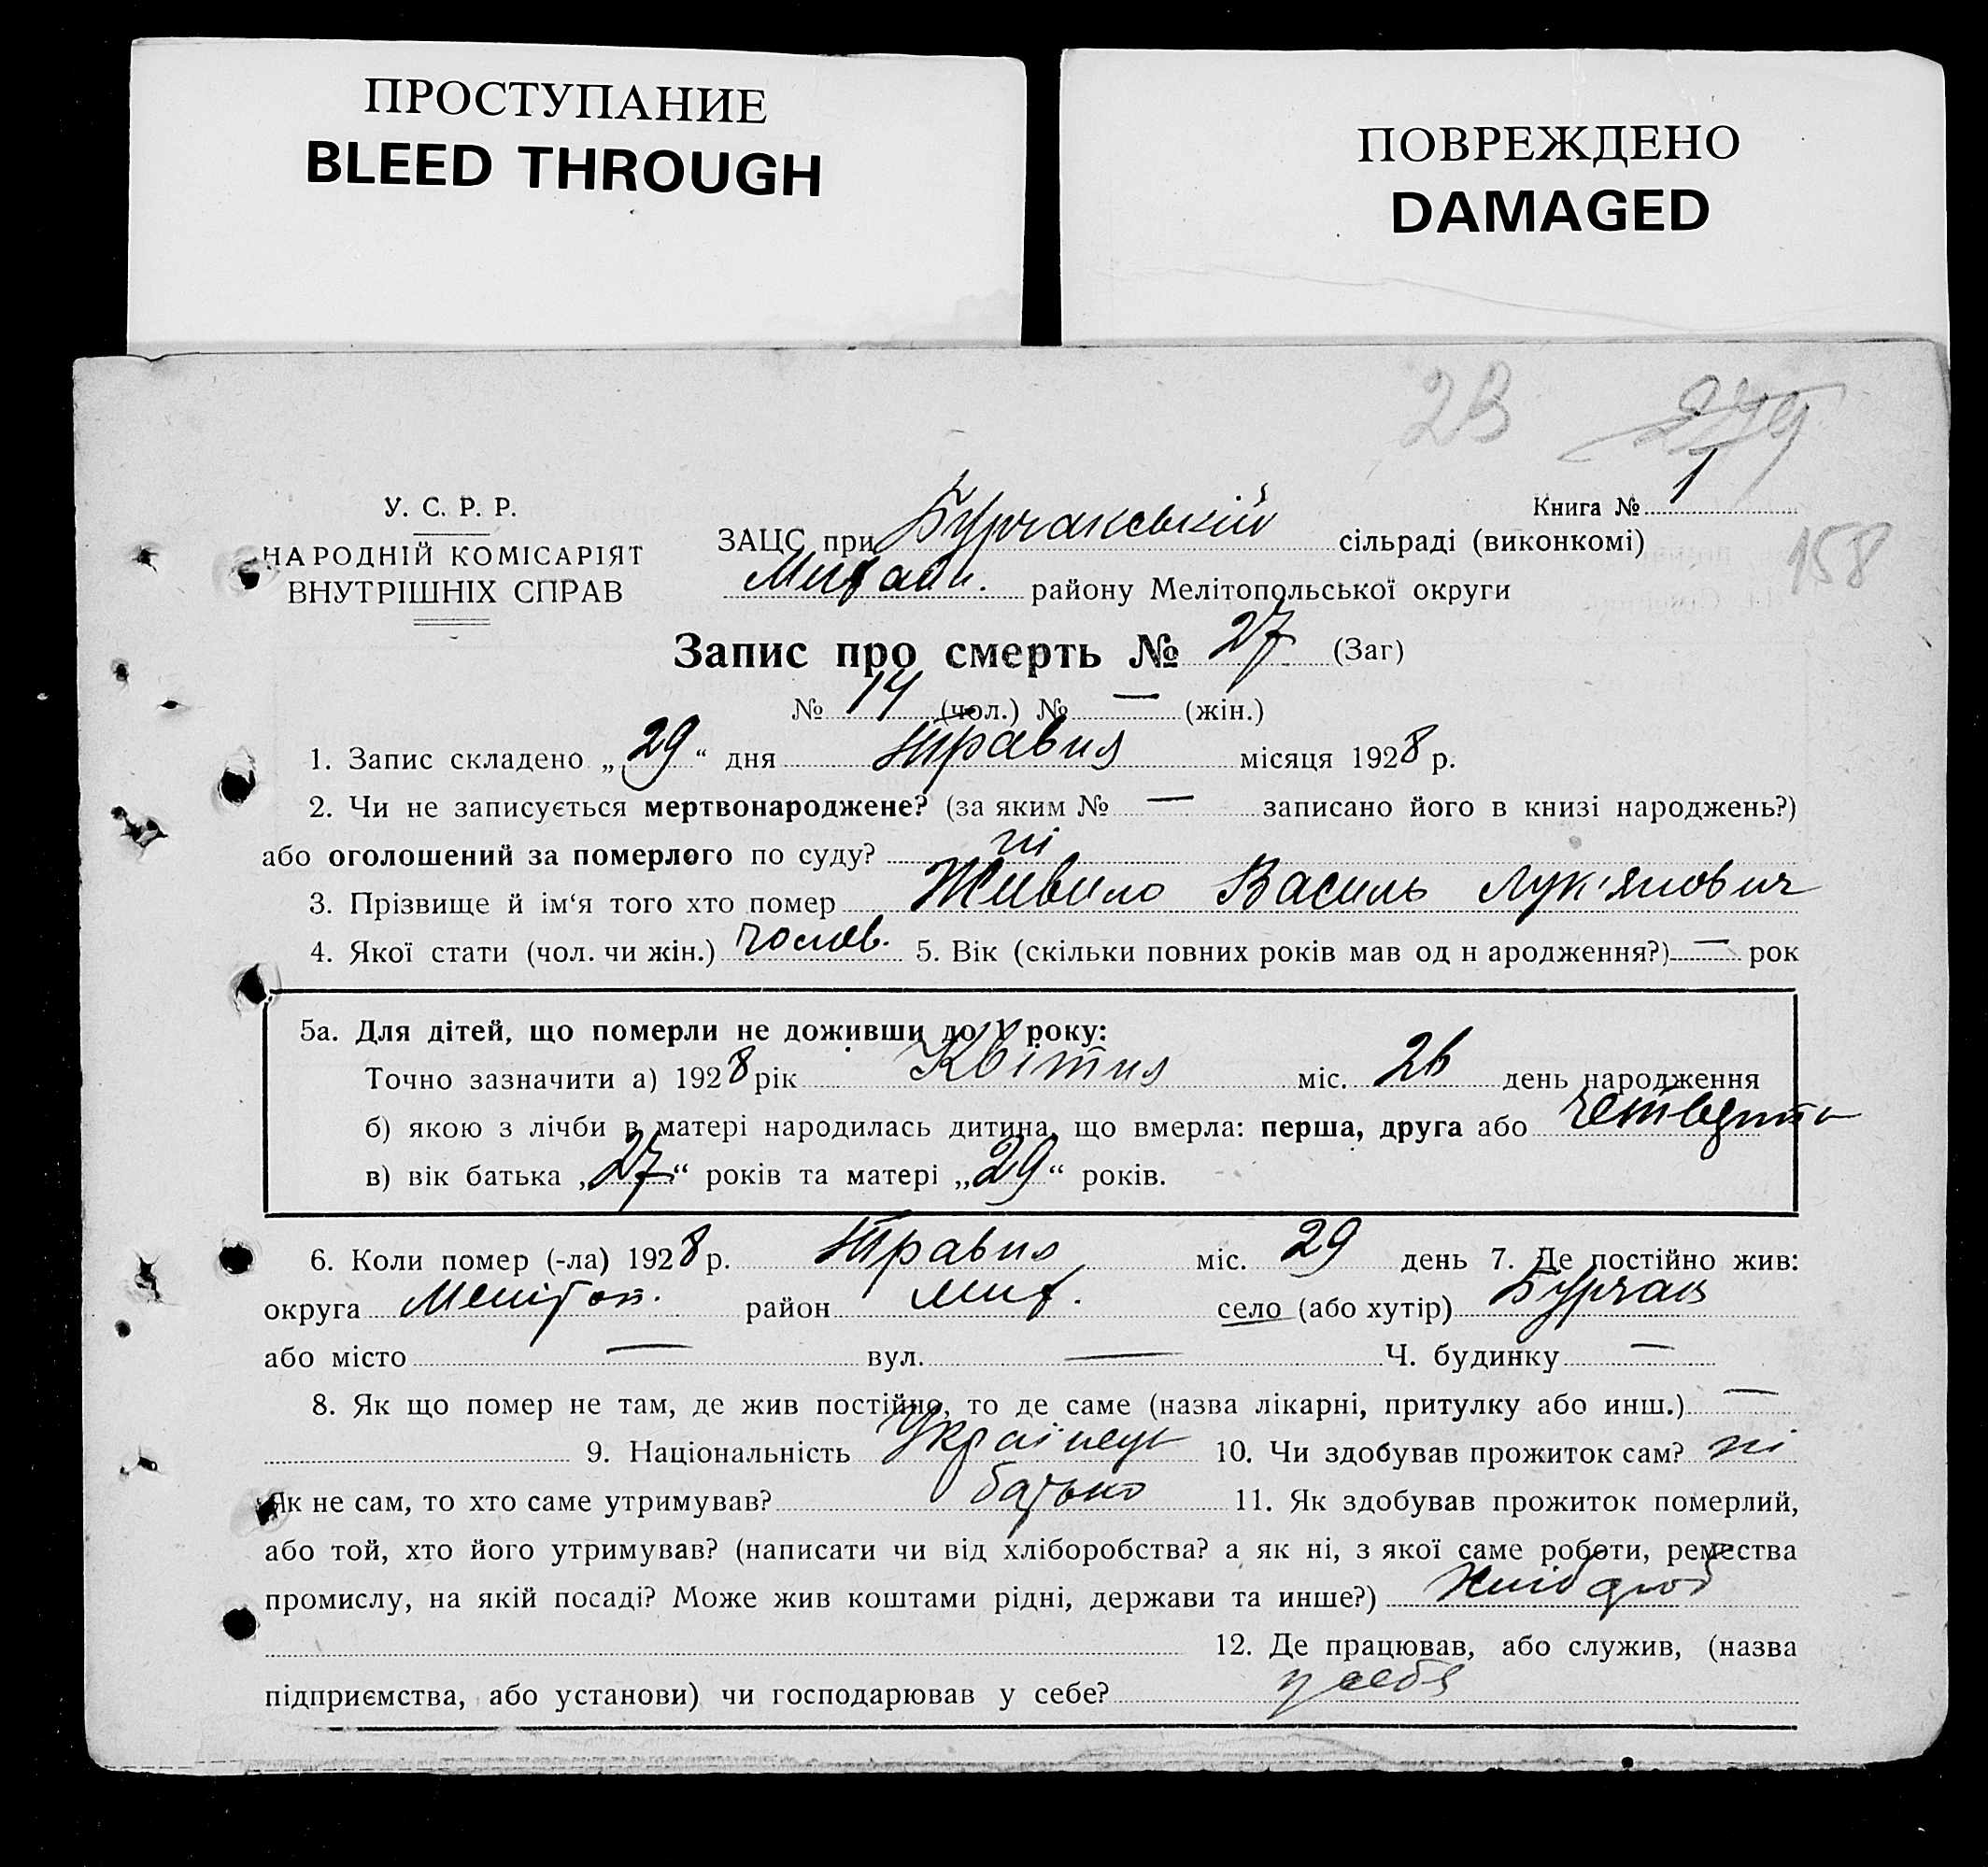 ПРОСТУПАНИЕ
BLEED THROUGH
ПОВРЕЖДЕНО
DAMAGED
2В
У. С. Р. Р.
НАРОДНІЙ КОМІСАРІЯТ
ВНУТРІШНІХ СПРАВ
Книга № 1
158
ЗАЦС при Бурчакській сільраді (виконкомі)
району Мелітопольської округи
Запис про смерть № 27 (Заг)
№ 14 (чол.) № — (жін.)
1. Запис складено „29“ дня травня місяця 1928 р.
2. Чи не записується мертвонароджене? (за яким № — записано його в книзі народжень?)
або оголошений за померлого по суду? ні
3. Прізвище й ім‘я того хто помер Живило Василь Лук'янович
4. Якої стати (чол. чи жін.) чолов. 5. Вік (скільки повних років мав од н ародження?) — рок
5а. Для дітей, що померли не доживши до 1 року:
Точно зазначити а) 1928 рік Квітня міс. 26 день народження
б) якою з лічби в матері народилась дитина, що вмерла: перша, друга або четверта
в) вік батька „27“ років та матері „29“ років.
6. Коли помер (-ла) 1928 р. травня міс. 29 день 7. Де постійно жив:
округа Меліт оп. район Мих. село (або хутір) Бурчак
або місто — вул. — Ч. будинку —
8. Як що помер не там, де жив постійно, то де саме (назва лікарні, притулку або инш.) —
9. Національність Українец 10. Чи здобував прожиток сам? ні
Як не сам, то хто саме утримував? батько 11. Як здобував прожиток померлий,
або той, хто його утримував? (написати чи від хліборобства? а як ні, з якої саме роботи, ремества
промислу, на якій посаді? Може жив коштами рідні, держави та инше?) Хлібороб
12. Де працював, або служив, (назва
підприємства, або установи) чи господарював у себе? у себя